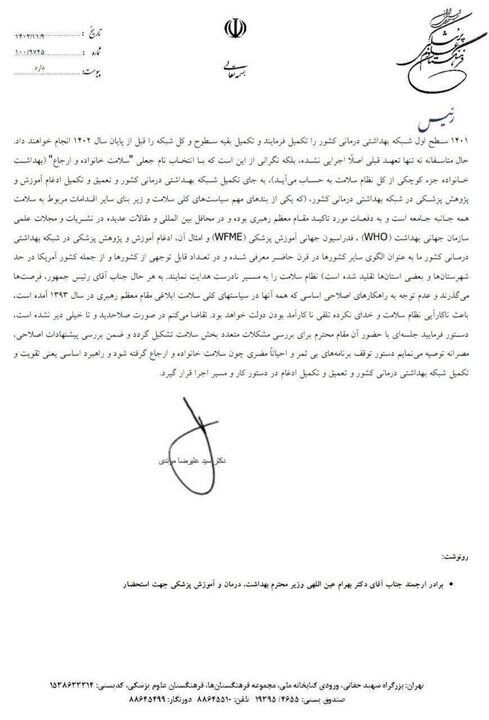 فرهنگستان علوم پزشکی
بسمه تعالی
تاریخ : ۱۴۰۲/۱۱/۹
شماره : ۱۰۰/۹۷۴۵
پیوست: دارد
رئیس
۱۴۰۱ سطح اول شبکه بهداشتی درمانی کشور را تکمیل فرمایند و تکمیل بقیه سطوح و کل شبکه را قبل از پایان سال ۱۴۰۲ انجام خواهند داد.
حال متاسفانه نه تنها تعهد قبلی اصلاً اجرایی نشده، بلکه نگرانی از این است که با انتخاب نام جعلی "سلامت خانواده و ارجاع" (بهداشت
خانواده جزء کوچکی از کل نظام سلامت به حساب می‌آید)، به جای تکمیل شبکه بهداشتی درمانی کشور و تعمیق و تکمیل ادغام آموزش و
پژوهش پزشکی در شبکه بهداشتی درمانی کشور، (که یکی از بندهای مهم سیاست‌های کلی سلامت و زیر بنای سایر اقدامات مربوط به سلامت
همه جانبه جامعه است و به دفعات مورد تاکید مقام معظم رهبری بوده و در محافل بین المللی و مقالات عدیده در نشریات و مجلات علمی
سازمان جهانی بهداشت (WHO) ، فدراسیون جهانی آموزش پزشکی (WFME) و امثال آن، ادغام آموزش و پژوهش پزشکی در شبکه بهداشتی
درمانی کشور ما به عنوان الگوی سایر کشورها در قرن حاضر معرفی شده و در تعداد قابل توجهی از کشورها و از جمله کشور آمریکا در حد
شهرستان‌ها و بعضی استان‌ها تقلید شده است) نظام سلامت را به مسیر نادرست هدایت نمایند. به هر حال جناب آقای رئیس جمهور، فرصت‌ها
می‌گذرند و عدم توجه به راهکارهای اصلاحی اساسی که همه آنها در سیاستهای کلی سلامت ابلاغی مقام معظم رهبری در سال ۱۳۹۳ آمده است،
باعث ناکارآیی نظام سلامت و خدای نکرده تلقی نا کارآمد بودن دولت خواهد بود. تقاضا می‌کنم در صورت صلاحدید و تا خیلی دیر نشده است،
دستور فرمایید جلسه‌ای با حضور آن مقام محترم برای بررسی مشکلات متعدد بخش سلامت تشکیل گردد و ضمن بررسی پیشنهادات اصلاحی،
مصرانه توصیه می‌نمایم دستور توقف برنامه‌های بی ثمر و احیاناً مضری چون سلامت خانواده و ارجاع گرفته شود و راهبرد اساسی یعنی تقویت و
تکمیل شبکه بهداشتی درمانی کشور و تعمیق و تکمیل ادغام در دستور کار و مسیر اجرا قرار گیرد.
دکتر سید علیرضا مرندی
رونوشت:
• برادر ارجمند جناب آقای دکتر بهرام عین اللهی وزیر محترم بهداشت، درمان و آموزش پزشکی جهت استحضار
تهران: بزرگراه شهید حقانی، ورودی کتابخانه ملی، مجموعه فرهنگستان‌ها، فرهنگستان علوم پزشکی، کدپستی: ۱۵۳۸۶۳۳۳۱۴
صندوق پستی: ۴۶۵۵/ ۱۹۳۹۵ تلفن: ۸۸۶۴۵۵۱۰ دورنگار: ۸۸۶۴۵۴۹۹